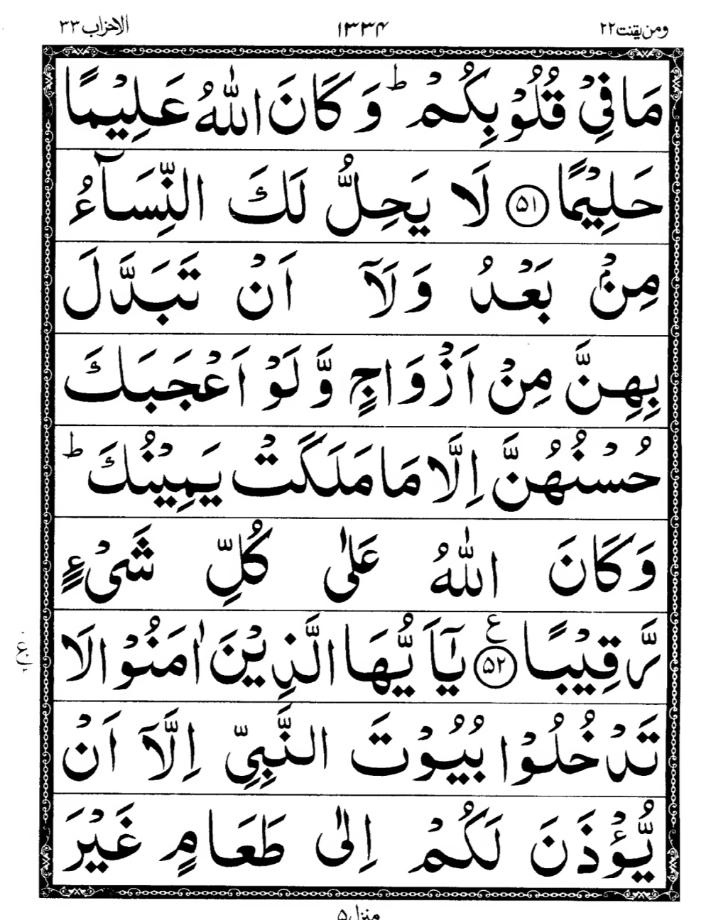 ومن یقنت ۲۲ ۱۳۳۴ الاحزاب ۳۳
مَا فِىْ قُلُوْبِكُمْ ؕ وَكَانَ اللّٰهُ عَلِيْمًا
حَلِيْمًا ۵۱ لَا يَحِلُّ لَكَ النِّسَآءُ
مِنْۢ بَعْدُ وَلَاۤ اَنْ تَبَدَّلَ
بِهِنَّ مِنْ اَزْوَاجٍ وَّلَوْ اَعْجَبَكَ
حُسْنُهُنَّ اِلَّا مَا مَلَكَتْ يَمِيْنُكَ ؕ
وَكَانَ اللّٰهُ عَلٰى كُلِّ شَىْءٍ
رَّقِيْبًا ۵۲ ع يٰۤاَيُّهَا الَّذِيْنَ اٰمَنُوْا لَا
تَدْخُلُوْا بُيُوْتَ النَّبِىِّ اِلَّاۤ اَنْ
يُّؤْذَنَ لَكُمْ اِلٰى طَعَامٍ غَيْرَ
منزل ۵